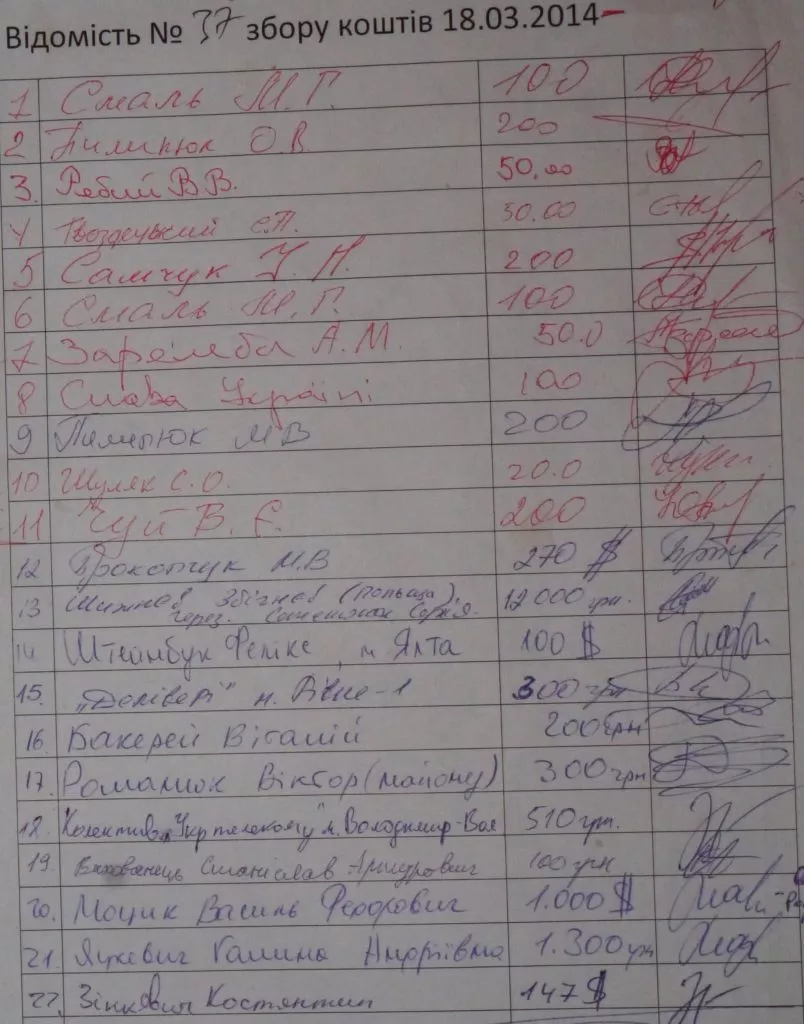 Відомість № 37 збору коштів 18.03.2014
1 Смаль М. Г. 100
2 Пилипюк О.В. 200
3. Ребий В.В. 50.00
4 Гвоздецький Є.П. 50.00
5 Самчук У. Н. 200
6 Смаль М. Г. 100
7 Заремба А.М. 50.0
8 Слава Україні 100
9 Пилипюк М В 200
10 Шуляк С.О. 20.0
11 Чуй В. Є. 200
12 Прокопчук М.В 270 $
13 Збігнєв (Польща), 12000 грн.
через
14 Штейнбук Фелікс, м Ялта 100 $
15. "Делівері" м. Рівне-1 300 грн
16. Бакерей Віталій 200 грн
17. Романюк Віктор (майдану) 300 грн
18. Колектив "Укртелекому" м. Володимир-Вол 510 грн.
19. Вихованець Станіслав Артурович 100 грн
20. Моцик Василь Федорович 1.000 $
21. Яцкевич Галина Андріївна 1.300 грн
22. Зінкевич Костянтин 147 $